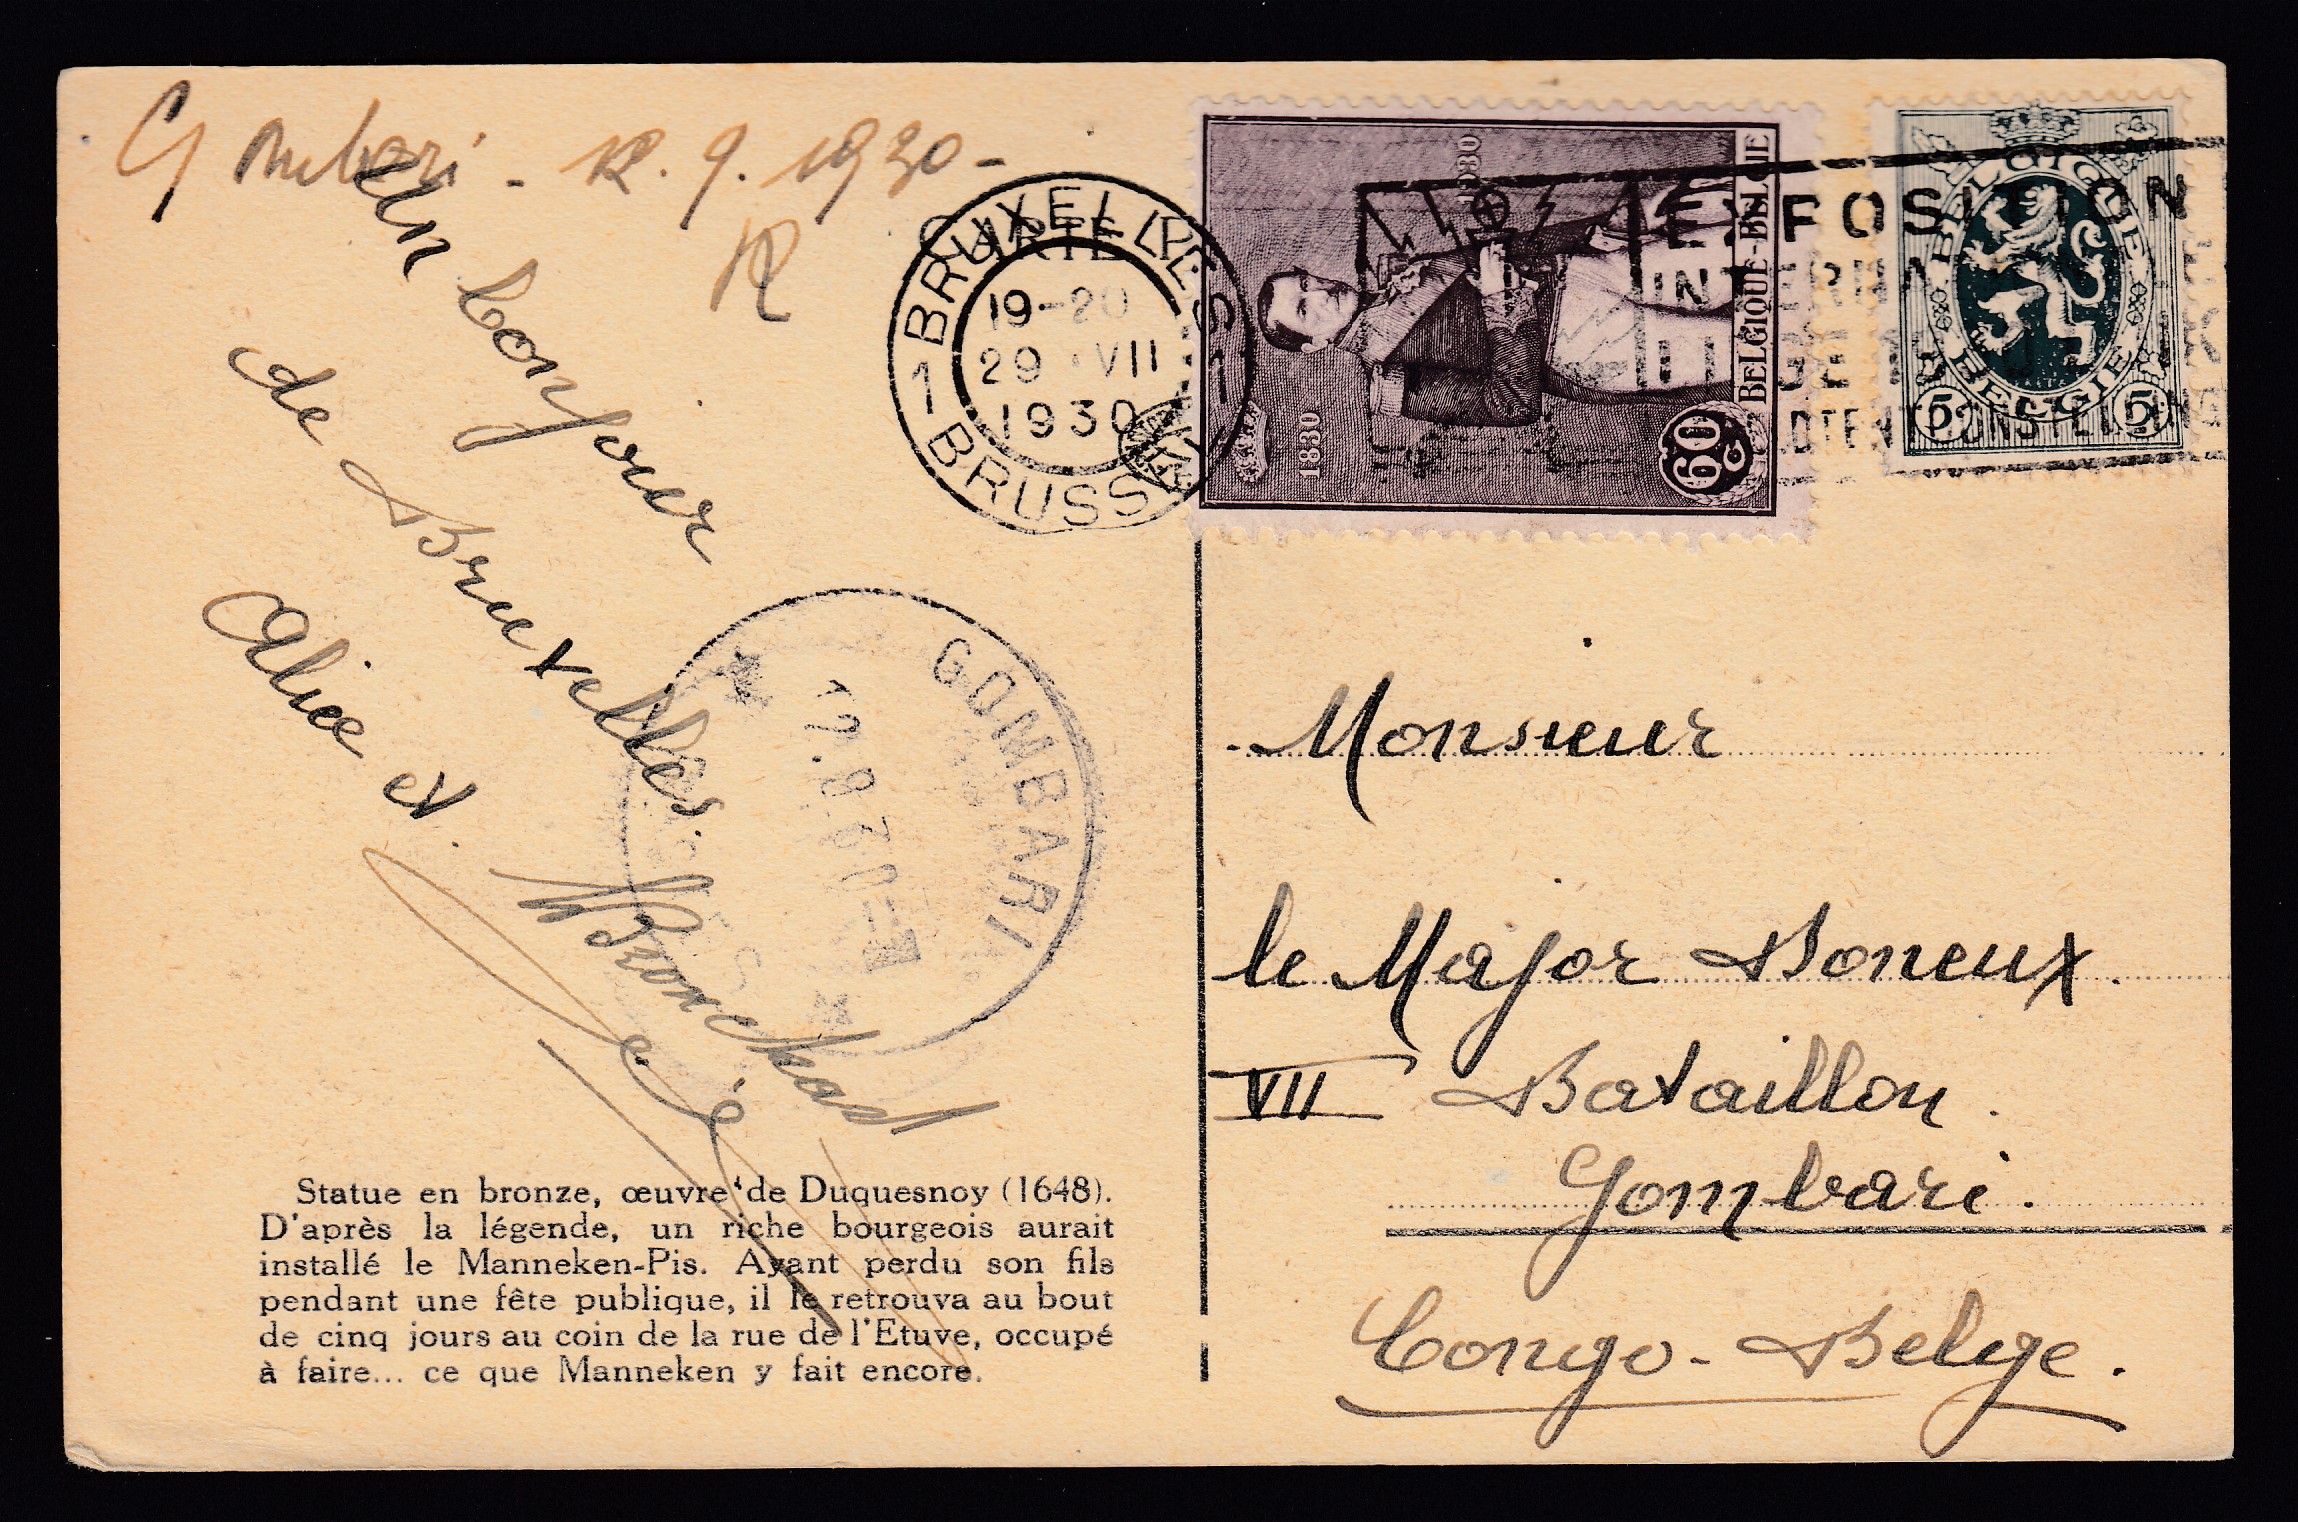 Gombari - 12.9.1930 -
R
Un bonjour
de Bruxelles.
Alice et
GOMBARI
12.8.30
Statue en bronze, œuvre de Duquesnoy (1648).
D'après la légende, un riche bourgeois aurait
installé le Manneken-Pis. Ayant perdu son fils
pendant une fête publique, il le retrouva au bout
de cinq jours au coin de la rue de l'Etuve, occupé
à faire... ce que Manneken y fait encore.
CARTE
1 BRUXELLES 1
19-20
29 VII
1930
BRUSS
1830
1930
BELGIQUE-BELGIE
60 c
EXPOSITION
BELGIQUE
BELGIE
5 5
Monsieur
le Major Boneux.
VII Bataillon.
Gombari.
Congo-Belge.